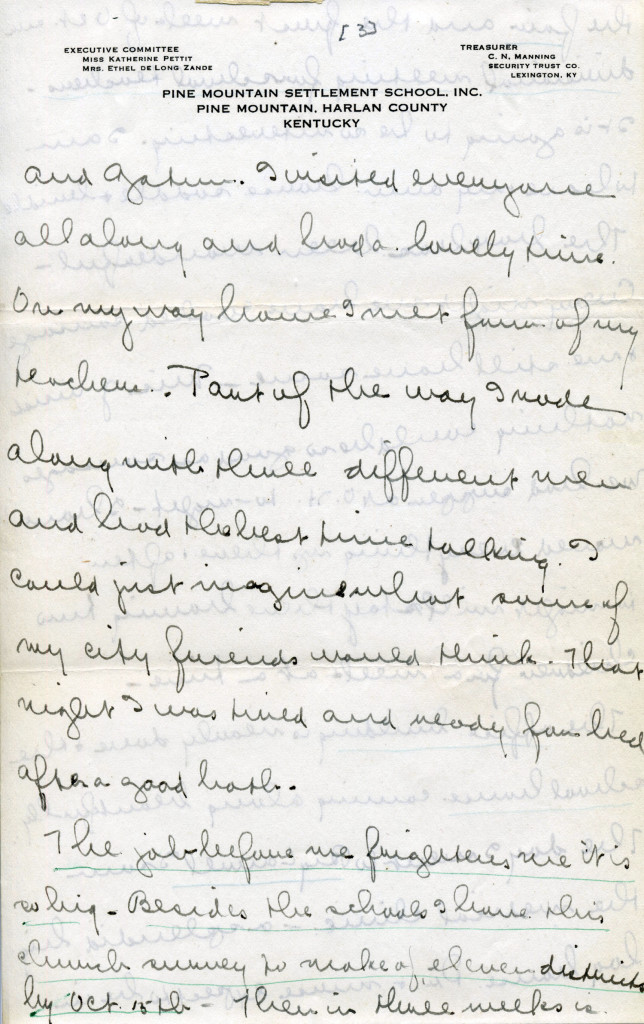 [3]
EXECUTIVE COMMITTEE
MISS KATHERINE PETTIT
MRS. ETHEL DE LONG ZANDE
TREASURER
C. N. MANNING
SECURITY TRUST CO.
LEXINGTON, KY
PINE MOUNTAIN SETTLEMENT SCHOOL, INC.
PINE MOUNTAIN, HARLAN COUNTY
KENTUCKY
and . I visited everyone
all along and had a lovely time.
On my way home I met four of my
teachers. Part of the way I rode
along with three different men
and had the best time talking. I
could just imagine what some of
my city friends would think. That
night I was tired and ready for bed
after a good bath.
The job before me frightens me it is
so big - Besides the schools I have this
church survey to make of eleven districts
by Oct. 15th - Then in three weeks is